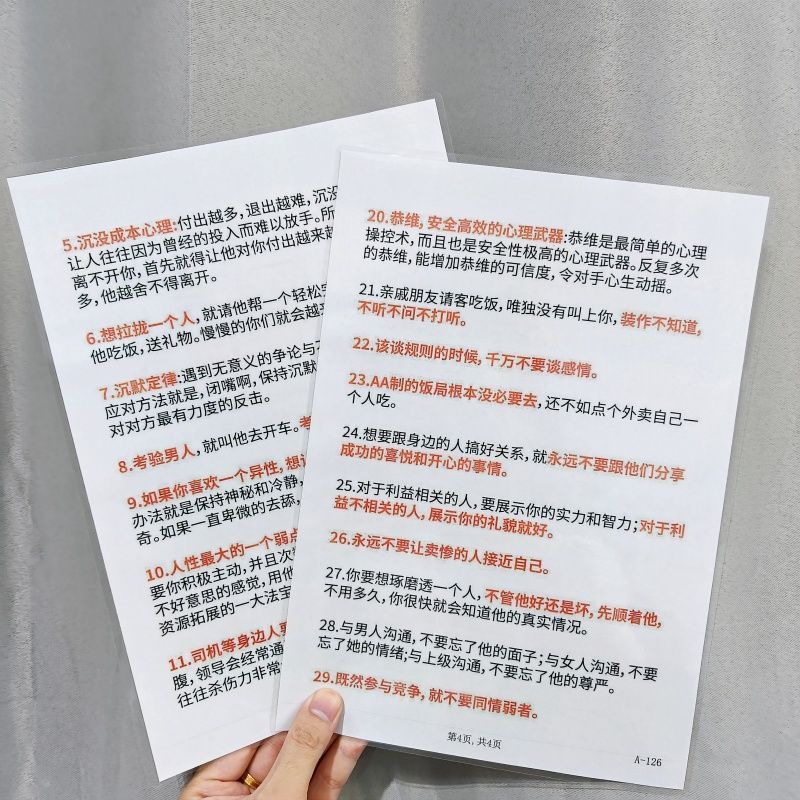 5.沉没成本心理:付出越多,退出越难,沉没
让人往往因为曾经的投入而难以放手。所
离不开你,首先就得让他对你付出越来越
多,他越舍不得离开。
6.想拉拢一个人,就请他帮一个轻松
他吃饭,送礼物。慢慢的你们就会越
7.沉默定律:遇到无意义的争论与
应对方法就是,闭嘴啊,保持沉默
对对方最有力度的反击。
8.考验男人,就叫他去开车。考
9.如果你喜欢一个异性,想
办法就是保持神秘和冷静,
奇。如果一直卑微的去舔,
10.人性最大的一个弱点
要你积极主动,并且次
不好意思的感觉,用他
资源拓展的一大法宝
11.司机等身边人要
腹,领导会经常通
往往杀伤力非常
20.恭维,安全高效的心理武器:恭维是最简单的心理
操控术,而且也是安全性极高的心理武器。反复多次
的恭维,能增加恭维的可信度,令对手心生动摇。
21.亲戚朋友请客吃饭,唯独没有叫上你,装作不知道,
不听不问不打听。
22.该谈规则的时候,千万不要谈感情。
23.AA制的饭局根本没必要去,还不如点个外卖自己一
个人吃。
24.想要跟身边的人搞好关系,就永远不要跟他们分享
成功的喜悦和开心的事情。
25.对于利益相关的人,要展示你的实力和智力;对于利
益不相关的人,展示你的礼貌就好。
26.永远不要让卖惨的人接近自己。
27.你要想琢磨透一个人,不管他好还是坏,先顺着他,
不用多久,你很快就会知道他的真实情况。
28.与男人沟通,不要忘了他的面子;与女人沟通,不要
忘了她的情绪;与上级沟通,不要忘了他的尊严。
29.既然参与竞争,就不要同情弱者。
第4页,共4页
A-126